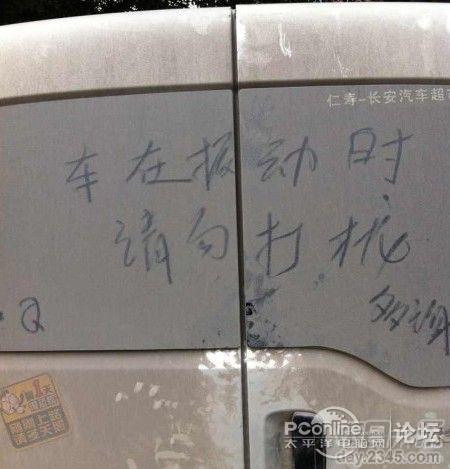 仁寿-长安汽车超市
车在振动时
请勿打扰
多谢
Q
PConline 论坛
太平洋电脑网
day.2345.com